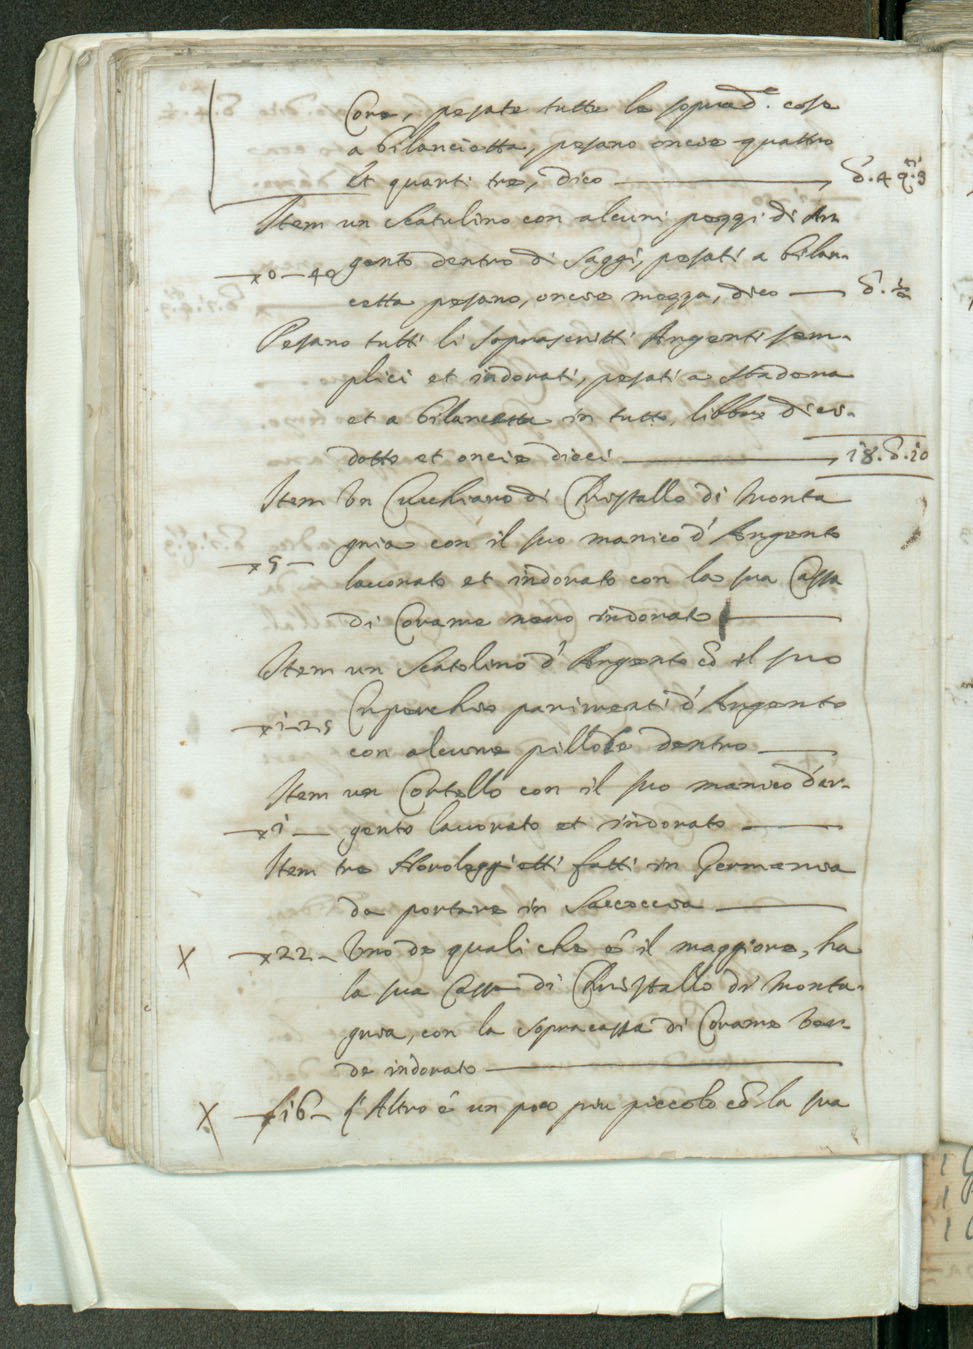 Core, pesate tutte le soprad.e cose
a bilancietta, pesano oncie quattro
et quarti tre, dico — δ. 4 q.ri 3
Item un Scatulino con alcuni pezzi di Ar-
gento dentro di saggi, pesati a bilan-
x 0 — 40
cetta pesano, oncie mezza, dico — δ. ½
Pesano tutti li soprascritti Argenti sem-
plici et indorati, pesati a stadera
et a bilancetta in tutto, libbre dici-
dotto et oncie dieci — 18. δ. 10
Item Un Cucchiaro di Christallo di Monta
gnia con il suo manico d'Argento
x 5 —
lavorato et indorato con la sua Cassa
di Corame nero indorato —
Item un Scatolino d'Argento cō il suo
x 1-25 Cuperchio parimenti d'Argento
con alcune pillole dentro —
Item un Cortello con il suo manico d'ar-
x 1 — gento lavorato et indorato —
Item tre Horologgietti fatti in Germania
da portare in Saccoccia —
X x 22 — Uno de quali che è il maggiore, ha
la sua Cassa di Christallo di Monta-
gnia, con la sopracassa di Corame ver-
de indorato —
X x 16 — l'Altro è un poco piu piccolo cō la sua